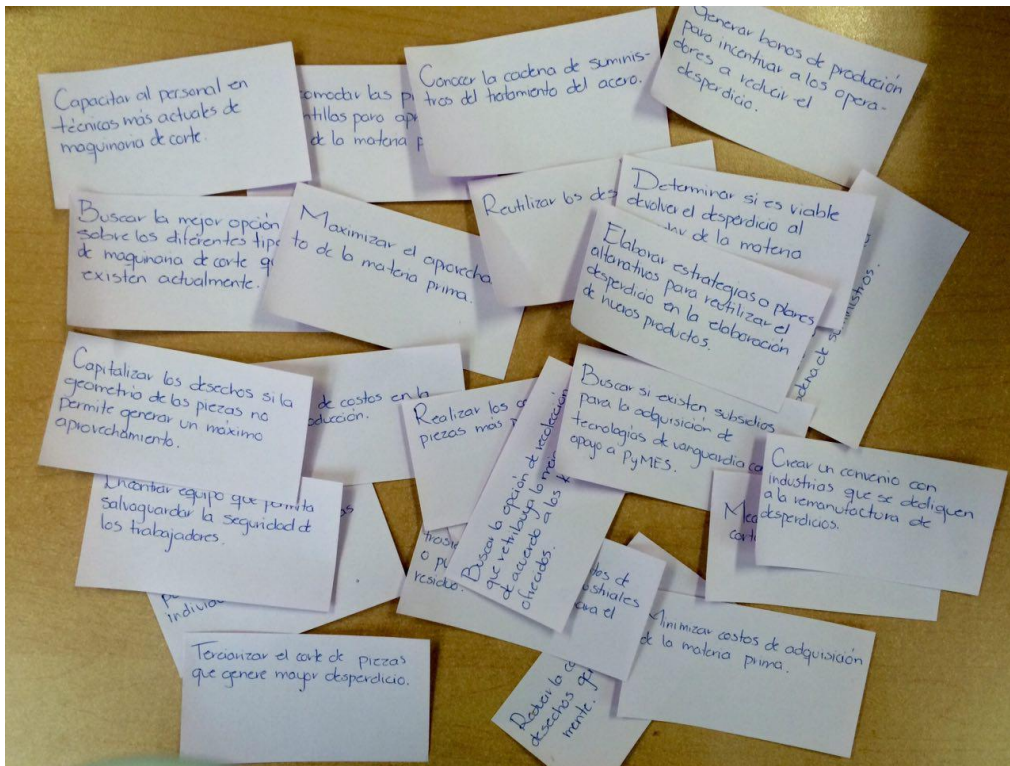 Capacitar al personal en
técnicas más actuales de
maquinaria de corte.
comodar las
ntillas para
de la materia
Conocer la cadena de suminis-
tros del tratamiento del acero.
Generar bonos de producción
para incentivar a los opera-
dores a reducir el
desperdicio.
Buscar la mejor opción
sobre los diferentes
de maquinaria de corte
existen actualmente.
Maximizar el aprovecha
to de la materia prima.
Reutilizar los des
Determinar si es viable
devolver el desperdicio al
de la materia
Elaborar estrategias o planes
alternativos para reutilizar el
desperdicio en la elaboración
de nuevos productos.
Capitalizar los desechos si la
geometría de las piezas no
permite generar un máximo
aprovechamiento.
de costos en la
Realizar los
piezas más
Buscar la opción de recolección
que retribuya lo
de acuerdo a los
ofrecidos.
Buscar si existen subsidios
para la adquisición de
tecnologías de vanguardia
apoyo a PyMES.
Crear un convenio con
industrias que se dediquen
a la remanufactura de
desperdicios.
Encontrar equipo que permita
salvaguardar la seguridad d
los trabajadores.
individ
residuo.
Minimizar costos de adquisición
de la materia prima.
Tercerizar el corte de piezas
que genere mayor desperdicio.
Reducir la
desechos
mente.